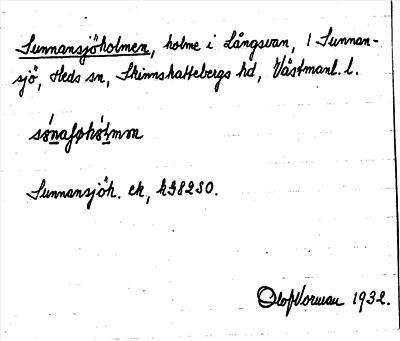 Sunnansjöholmen, holme i Långsvan, 1 Sunnan-
sjö, Heds sn, Skinnskattebergs hd, Västmanl. l.
Sunnansjöh. ek,
Olof Vorman 1932.